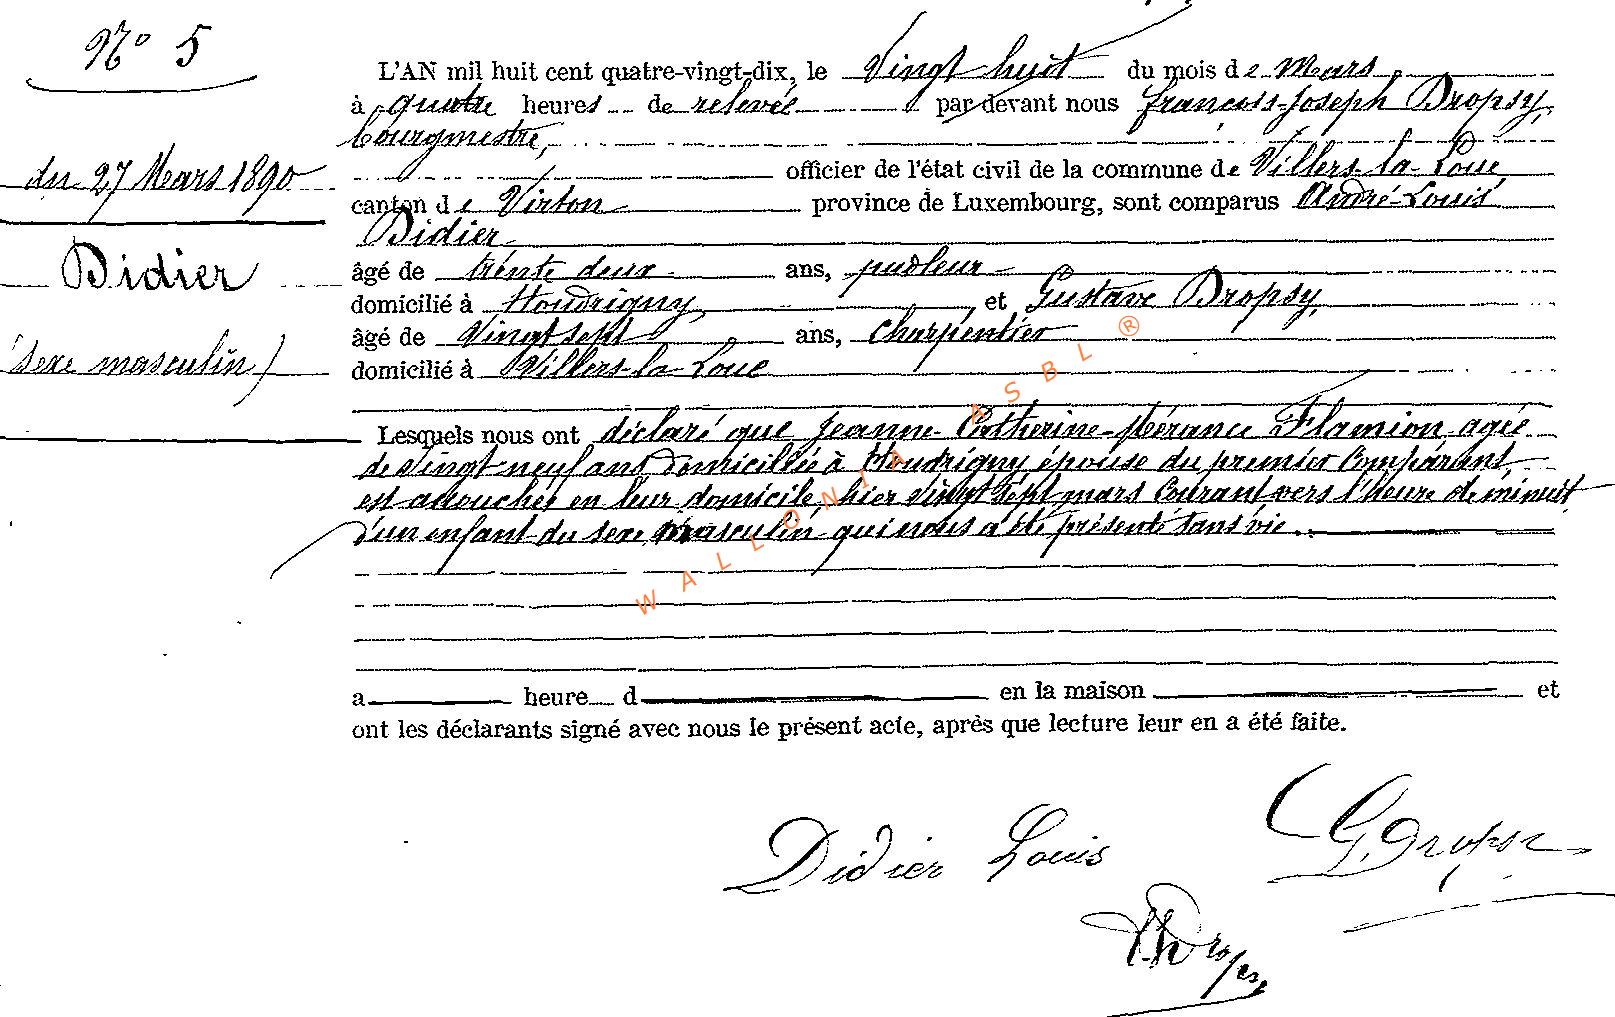 N° 5
du 27 Mars 1890
Didier
(sexe masculin)
L'AN mil huit cent quatre-vingt-dix, le Vingt huit du mois de Mars
à quatre heures de relevée par devant nous françois-Joseph Dropsy,
bourgmestre,
officier de l'état civil de la commune de Villers-la-Loue
canton de Virton province de Luxembourg, sont comparus André-Louis
Didier
âgé de trente deux ans, pudleur
domicilié à Houdrigny, et Gustave Dropsy,
âgé de Vingt sept ans, charpentier
domicilié à Villers-la-Loue
Lesquels nous ont déclaré que Jeanne-Catherine-Mérance Flamion agée
de Vingt-neuf ans domiciliée à Houdrigny épouse du premier comparant,
est accouchée en leur domicile, hier Vingt sept mars courant vers l'heure de minuit
d'un enfant du sexe masculin qui nous a été présenté sans vie.
a heure d en la maison et
ont les déclarants signé avec nous le présent acte, après que lecture leur en a été faite.
Didier Louis
G. Dropsy
Dropsy
WALLONIA ASBL ®